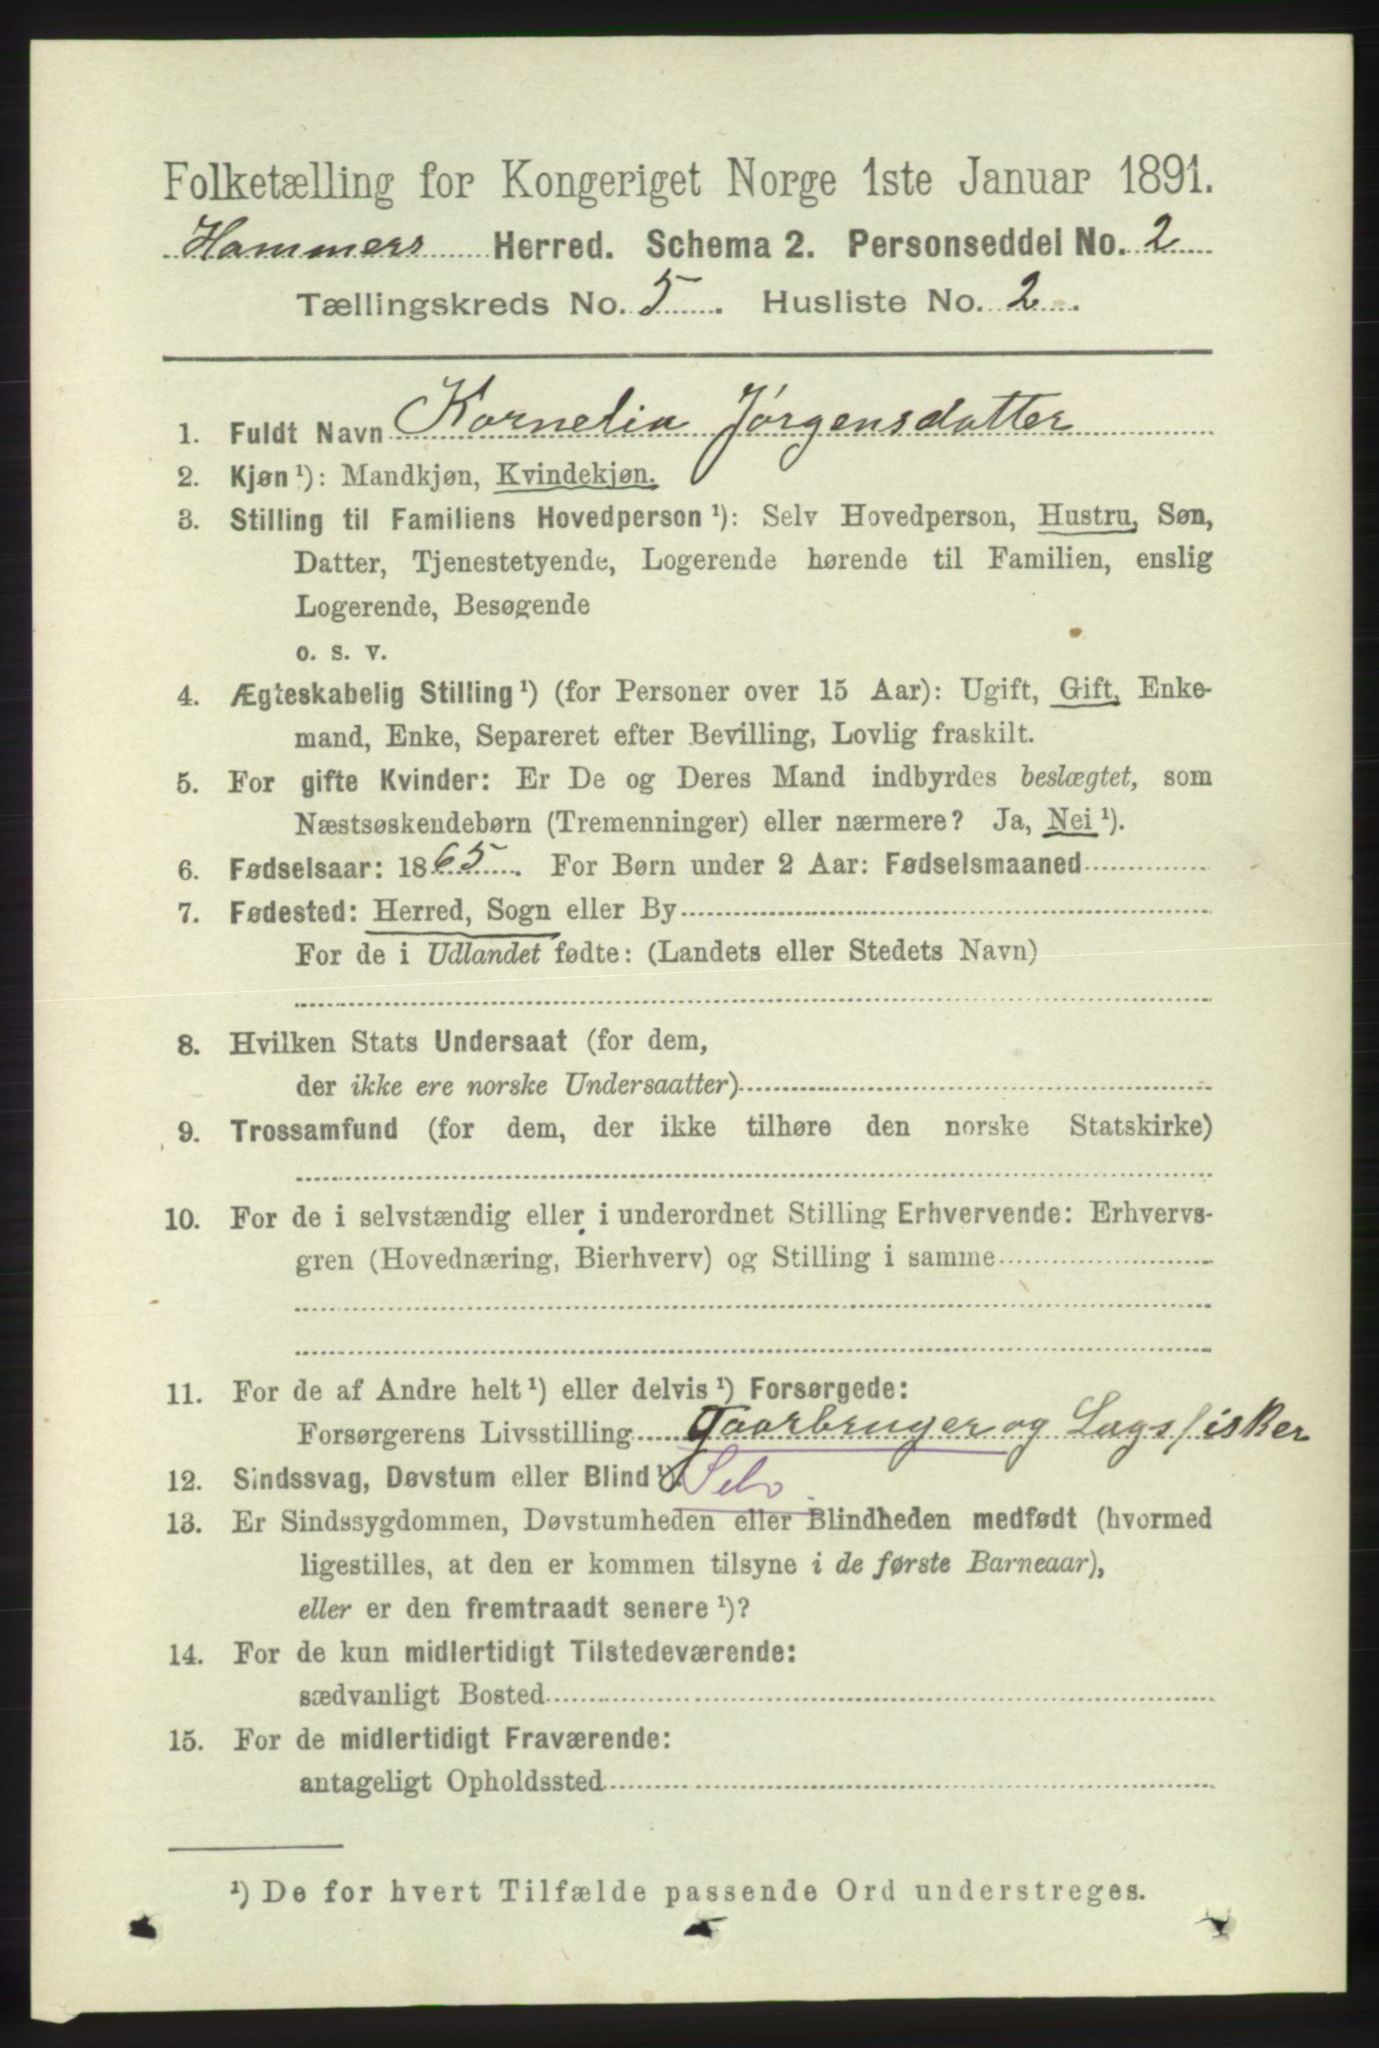 Folketælling for Kongeriget Norge 1ste Januar 1891.
Hammers Herred. Schema 2. Personseddel No. 2
Tællingskreds No. 5. Husliste No. 2.
1. Fuldt Navn Kornelia Jørgensdatter
2. Kjøn ¹): Mandkjøn, Kvindekjøn.
3. Stilling til Familiens Hovedperson ¹): Selv Hovedperson, Hustru, Søn,
Datter, Tjenestetyende, Logerende hørende til Familien, enslig
Logerende, Besøgende
o. s. v.
4. Ægteskabelig Stilling ¹) (for Personer over 15 Aar): Ugift, Gift, Enke-
mand, Enke, Separeret efter Bevilling, Lovlig fraskilt.
5. For gifte Kvinder: Er De og Deres Mand indbyrdes beslægtet, som
Næstsøskendebørn (Tremenninger) eller nærmere? Ja, Nei ¹).
6. Fødselsaar: 1865. For Børn under 2 Aar: Fødselsmaaned
7. Fødested: Herred, Sogn eller By
For de i Udlandet fødte: (Landets eller Stedets Navn)
8. Hvilken Stats Undersaat (for dem,
der ikke ere norske Undersaatter)
9. Trossamfund (for dem, der ikke tilhøre den norske Statskirke)
10. For de i selvstændig eller i underordnet Stilling Erhvervende: Erhvervs-
gren (Hovednæring, Bierhverv) og Stilling i samme
11. For de af Andre helt ¹) eller delvis ¹) Forsørgede:
Forsørgerens Livsstilling Gaarbruger og Lagsfisker
12. Sindssvag, Døvstum eller Blind ¹). Selv
13. Er Sindssygdommen, Døvstumheden eller Blindheden medfødt (hvormed
ligestilles, at den er kommen tilsyne i de første Barneaar),
eller er den fremtraadt senere ¹)?
14. For de kun midlertidigt Tilstedeværende:
sædvanligt Bosted
15. For de midlertidigt Fraværende:
antageligt Opholdssted
¹) De for hvert Tilfælde passende Ord understreges.